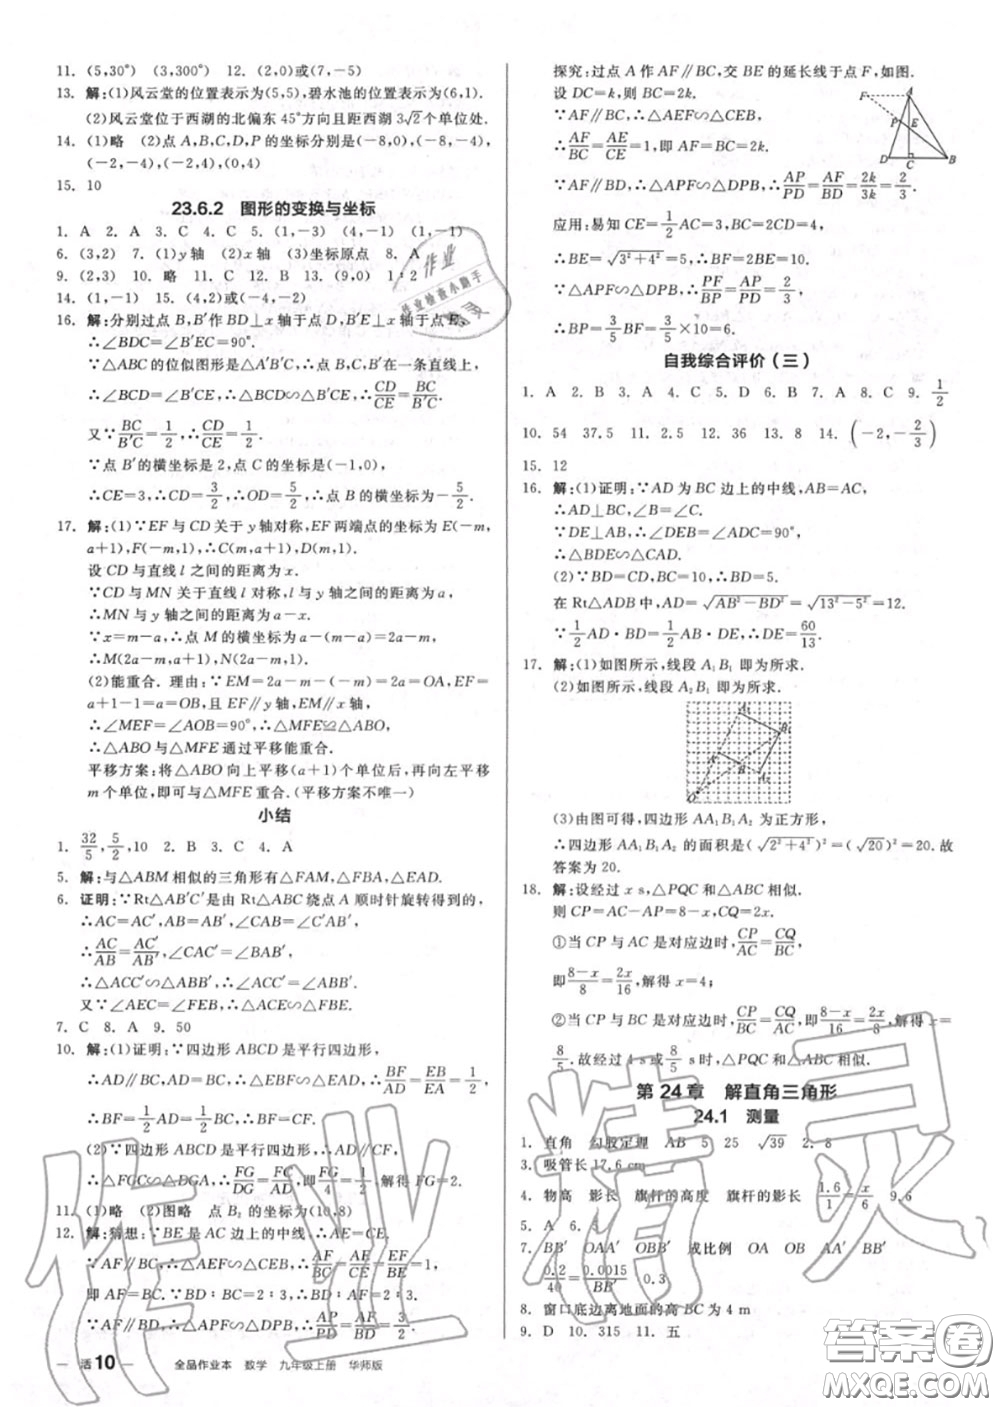 11. (5,30°) (3,300°) 12. (2,0)或(7,-5)
13. 解:(1)风云堂的位置表示为(5,5),碧水池的位置表示为(6,1).
(2)风云堂位于西湖的北偏东45°方向且距西湖3√2个单位处.
14. (1)略 (2)点A,B,C,D,P的坐标分别是(-8,0),(-8,-4),
(-2,-4),(-2,4),(0,4)
15. 10
23.6.2 图形的变换与坐标
1. A 2. A 3. C 4. C 5. (1,-3) (4,-1) (1,-1)
6. (3,2) 7. (1)y轴 (2)x轴 (3)坐标原点 8. A
9. (2,3) 10. 略 11. C 12. B 13. (9,0) 1∶2
14. (1,-1) 15. (4,2)或(-4,-2)
16. 解:分别过点B,B′作BD⊥x轴于点D,B′E⊥x轴于点E,
∴∠BDC=∠B′EC=90°.
∵△ABC的位似图形是△A′B′C,∴点B,C,B′在一条直线上,
∴∠BCD=∠B′CE,∴△BCD∽△B′CE,∴CD/CE=BC/B′C.
又∵BC/B′C=1/2,∴CD/CE=1/2.
∵点B′的横坐标为2,点C的横坐标为-1,
∴CE=3,∴CD=3/2,∴OD=5/2,∴点B的横坐标为-5/2.
17. 解:(1)∵EF与CD关于y轴对称,EF两端点的坐标为E(-m,
a+1),F(-m,1),∴C(m,a+1),D(m,1).
设CD与直线l之间的距离为x.
∵CD与MN关于直线l对称,l与y轴之间的距离为a,
∴MN与y轴之间的距离为a-x.
∵x=m-a,∴点M的横坐标为a-(m-a)=2a-m,
∴M(2a-m,a+1),N(2a-m,1).
(2)能重合.理由:∵EM=2a-m-(-m)=2a=OA,EF=
a+1-1=a=OB,且EF∥y轴,EM∥x轴,
∴∠MEF=∠AOB=90°,∴△MFE≌△ABO,
∴△ABO与△MFE通过平移能重合.
平移方案:将△ABO向上平移(a+1)个单位后,再向左平移
m个单位,即可与△MFE重合.(平移方案不唯一)
小结
1. 32/5,5/2,10 2. B 3. C 4. A
5. 解:与△ABM相似的三角形有△FAM,△FBA,△EAD.
6. 证明:∵Rt△AB′C′是由Rt△ABC绕点A顺时针旋转得到的,
∴AC=AC′,AB=AB′,∠CAB=∠C′AB′,
∴AC/AB=AC′/AB′,∠CAC′=∠BAB′,
∴△ACC′∽△ABB′,∴∠ACC′=∠ABB′.
又∵∠AEC=∠FEB,∴△ACE∽△FBE.
7. C 8. A 9. 50
10. 解:(1)证明:∵四边形ABCD是平行四边形,
∴AD∥BC,AD=BC,∴△EBF∽△EAD,∴BF/AD=EB/EA=1/2,
∴BF=1/2AD=1/2BC,∴BF=CF.
(2)∵四边形ABCD是平行四边形,∴AD∥CF,
∴△FGC∽△DGA,∴FG/DG=FC/AD,即FG/4=1/2,解得FG=2.
11. (1)略 (2)图略 点B₂的坐标为(10,8)
12. 解:猜想:∵BE是AC边上的中线,∴AE=CE.
∵AF∥BC,∴△AEF∽△CEB,∴AF/BC=AE/CE=1,
即AF=BC.∵BD∶BC=2∶3,∴BD∶AF=2∶3.
∵AF∥BD,∴△APF∽△DPB,∴AP/PD=AF/BD=3/2.
活10 全品作业本 数学 九年级上册 华师版
探究:过点A作AF∥BC,交BE的延长线于点F,如图.
设DC=k,则BC=2k.
∵AF∥BC,∴△AEF∽△CEB,
∴AF/BC=AE/CE=1,即AF=BC=2k.
∵AF∥BD,∴△APF∽△DPB,∴AP/PD=AF/BD=2k/3k=2/3.
F A E P D C B
应用:易知CE=1/2AC=3,BC=2CD=4,
∴BE=√(3²+4²)=5,∴BF=2BE=10.
∵△APF∽△DPB,∴PF/BP=AP/PD=2/3,
∴BP=3/5BF=3/5×10=6.
自我综合评价(三)
1. A 2. B 3. A 4. C 5. D 6. B 7. A 8. C 9. 1/2
10. 54 37.5 11. 2.5 12. 36 13. 8 14. (-2,-2/3)
15. 12
16. 解:(1)证明:∵AD为BC边上的中线,AB=AC,
∴AD⊥BC,∠B=∠C.
∵DE⊥AB,∴∠DEB=∠ADC=90°,
∴△BDE∽△CAD.
(2)∵BD=CD,BC=10,∴BD=5.
在Rt△ADB中,AD=√(AB²-BD²)=√(13²-5²)=12.
∵1/2AD·BD=1/2AB·DE,∴DE=60/13.
17. 解:(1)如图所示,线段A₁B₁即为所求.
(2)如图所示,线段A₂B₁即为所求.
A₁ B₁ A B A₂ O
(3)由图可得,四边形AA₁B₁A₂为正方形,
∴四边形AA₁B₁A₂的面积是(√(2²+4²))²=(√20)²=20.故
答案为20.
18. 解:设经过x s,△PQC和△ABC相似.
则CP=AC-AP=8-x,CQ=2x.
①当CP与AC是对应边时,CP/AC=CQ/BC,
即(8-x)/8=2x/16,解得x=4;
②当CP与BC是对应边时,CP/BC=CQ/AC,即(8-x)/16=2x/8,解得x=
8/5.故经过4 s或8/5 s时,△PQC和△ABC相似.
第24章 解直角三角形
24.1 测量
1. 直角 勾股定理 AB 5 25 √39 2. 8
3. 吸管长17.6 cm
4. 物高 影长 旗杆的高度 旗杆的影长 1.6/1=x/6 9.6
5. A 6. 5
7. BB′ OAA′ OBB′ 成比例 OA OB AA′ BB′
0.2/40=0.0015/BB′ 0.3
8. 窗口底边离地面的高BC为4 m
9. D 10. 315 11. 五
作业
作业检查小助手
作业精灵
答案圈
MXQE.COM